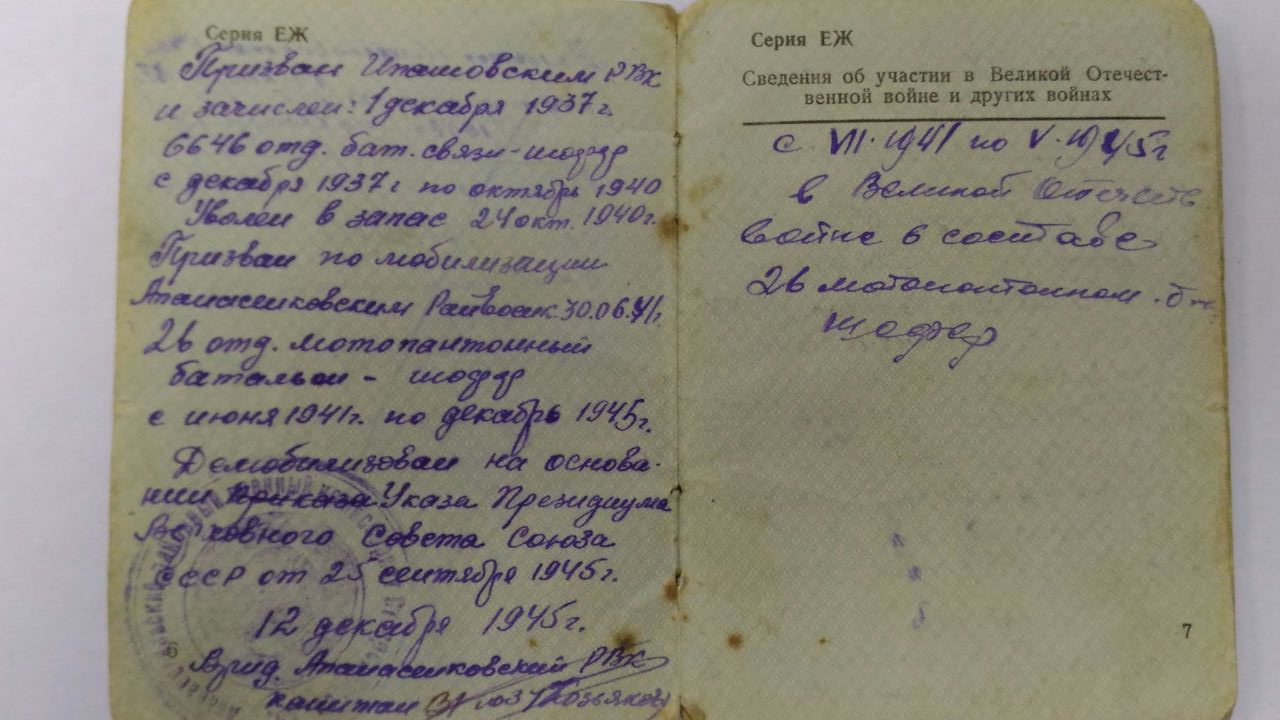 Серия ЕЖ
Призван Ипатовским РВК
и зачислен: 1 декабря 1937 г.
6646 отд. бат. связи - шофер
с декабря 1937 г по октябрь 1940
Уволен в запас 24 окт. 1940 г.
Призван по мобилизации
Апанасенковским Райвоенк. 30.06.41 г.
26 отд. мотопантонный
батальон - шофер
с июня 1941 г. по декабрь 1945 г.
Демобилизован на основа-
нии приказа Указа Президиума
Верховного Совета Союза
СССР от 25 сентября 1945 г.
12 декабря 1945 г.
Врид. Апанасенковский РВК
капитан
6
Серия ЕЖ
Сведения об участии в Великой Отечест-
венной войне и других войнах
с VII. 1941 по V. 1945 г
в Великой Отечеств.
войне в составе
26 мотопонтонном
шофер
7